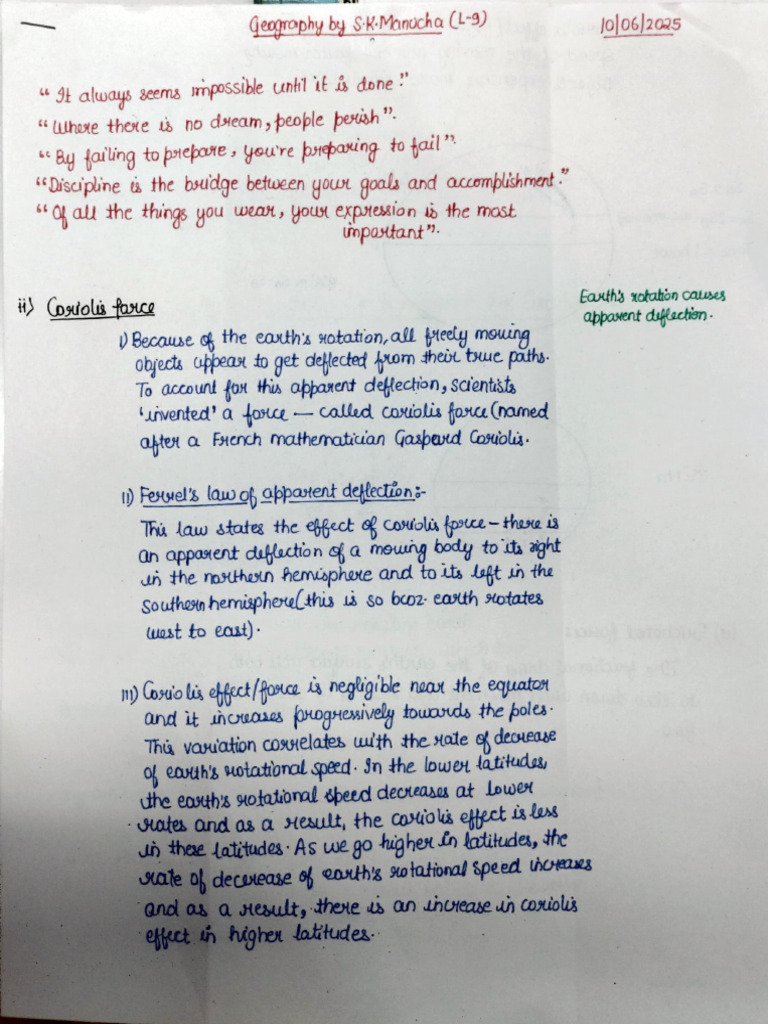 Geography by S.K.Manocha (L-9) 10/06/2025
"It always seems impossible until it is done."
"Where there is no dream, people perish".
"By failing to prepare, you're preparing to fail".
"Discipline is the bridge between your goals and accomplishment."
"Of all the things you wear, your expression is the most
important".
ii) Coriolis force
Earth's rotation causes
apparent deflection.
i) Because of the earth's rotation, all freely moving
objects appear to get deflected from their true paths.
To account for this apparent deflection, scientists
'invented' a force — called coriolis force (named
after a French mathematician Gaspard Coriolis.
ii) Ferrel's law of apparent deflection:-
This law states the effect of coriolis force – there is
an apparent deflection of a moving body to its right
in the northern hemisphere and to its left in the
Southern hemisphere (this is so bcoz. earth rotates
west to east).
iii) Coriolis effect/force is negligible near the equator
and it increases progressively towards the poles.
This variation correlates with the rate of decrease
of earth's rotational speed. In the lower latitudes,
the earth's rotational speed decreases at lower
rates and as a result, the coriolis effect is less
in these latitudes. As we go higher in latitudes, the
rate of decerease of earth's rotational speed increases
and as a result, there is an increase in coriolis
effect in higher latitudes.